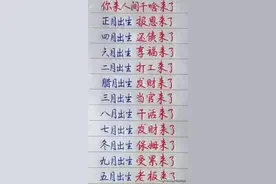 你来人间干啥来了
正月出生 报恩来了
四月出生 还债来了
六月出生 享福来了
二月出生 打工来了
腊月出生 发财来了
三月出生 当官来了
八月出生 干活来了
七月出生 发财来了
冬月出生 保姆来了
九月出生 受累来了
五月出生 老板来了